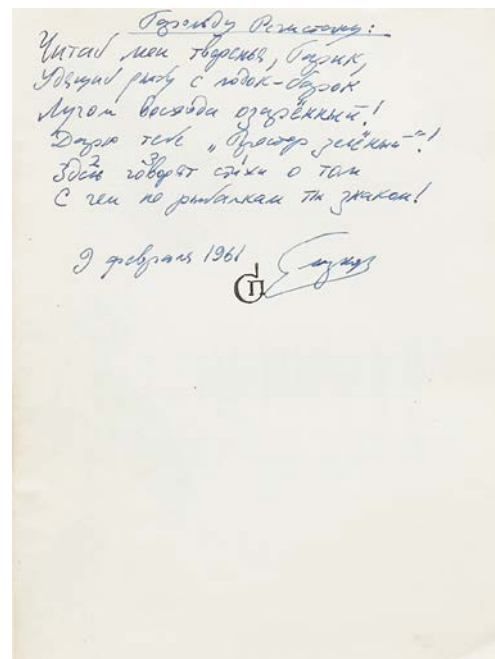 Гарольду Регистану:
Читай мои творенья, Гарик,
Удящий рыбу с лодок-барок
Лучом восхода озарённый!
Дарю тебе „Простор зелёный“!
Здесь говорят стихи о том
С чем по рыбалкам ты знаком!
9 февраля 1961
СП